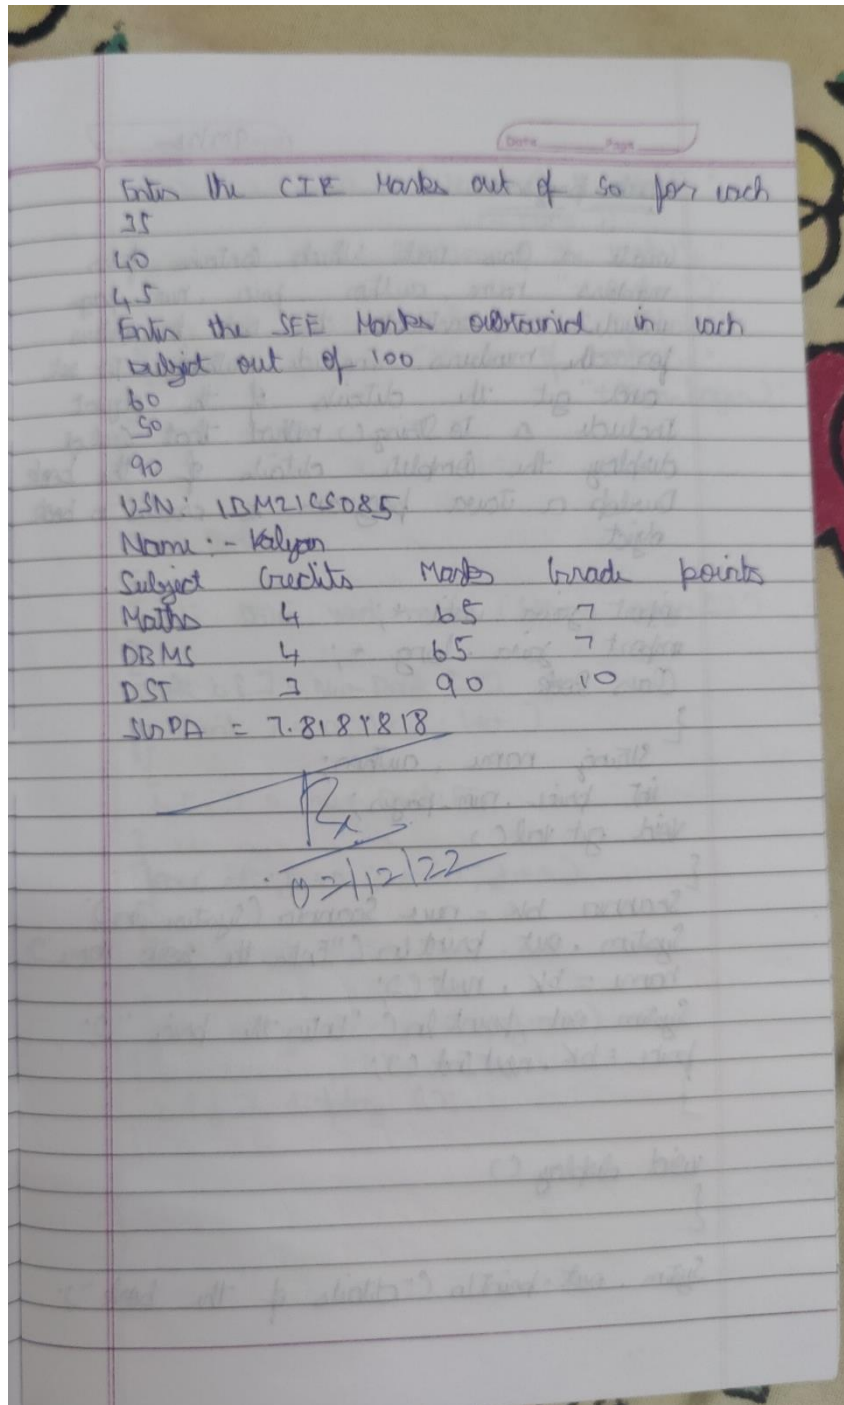 Date Page
Enter the CIE Marks out of 50 for each
35
40
45
Enter the SEE Marks obtained in each
subject out of 100
60
50
90
USN: 1BM21CS085
Name :- Kalyan
Subject Credits Marks Grade points
Maths 4 65 7
DBMS 4 65 7
DST 3 90 10
SGPA = 7.8181818
02/12/22